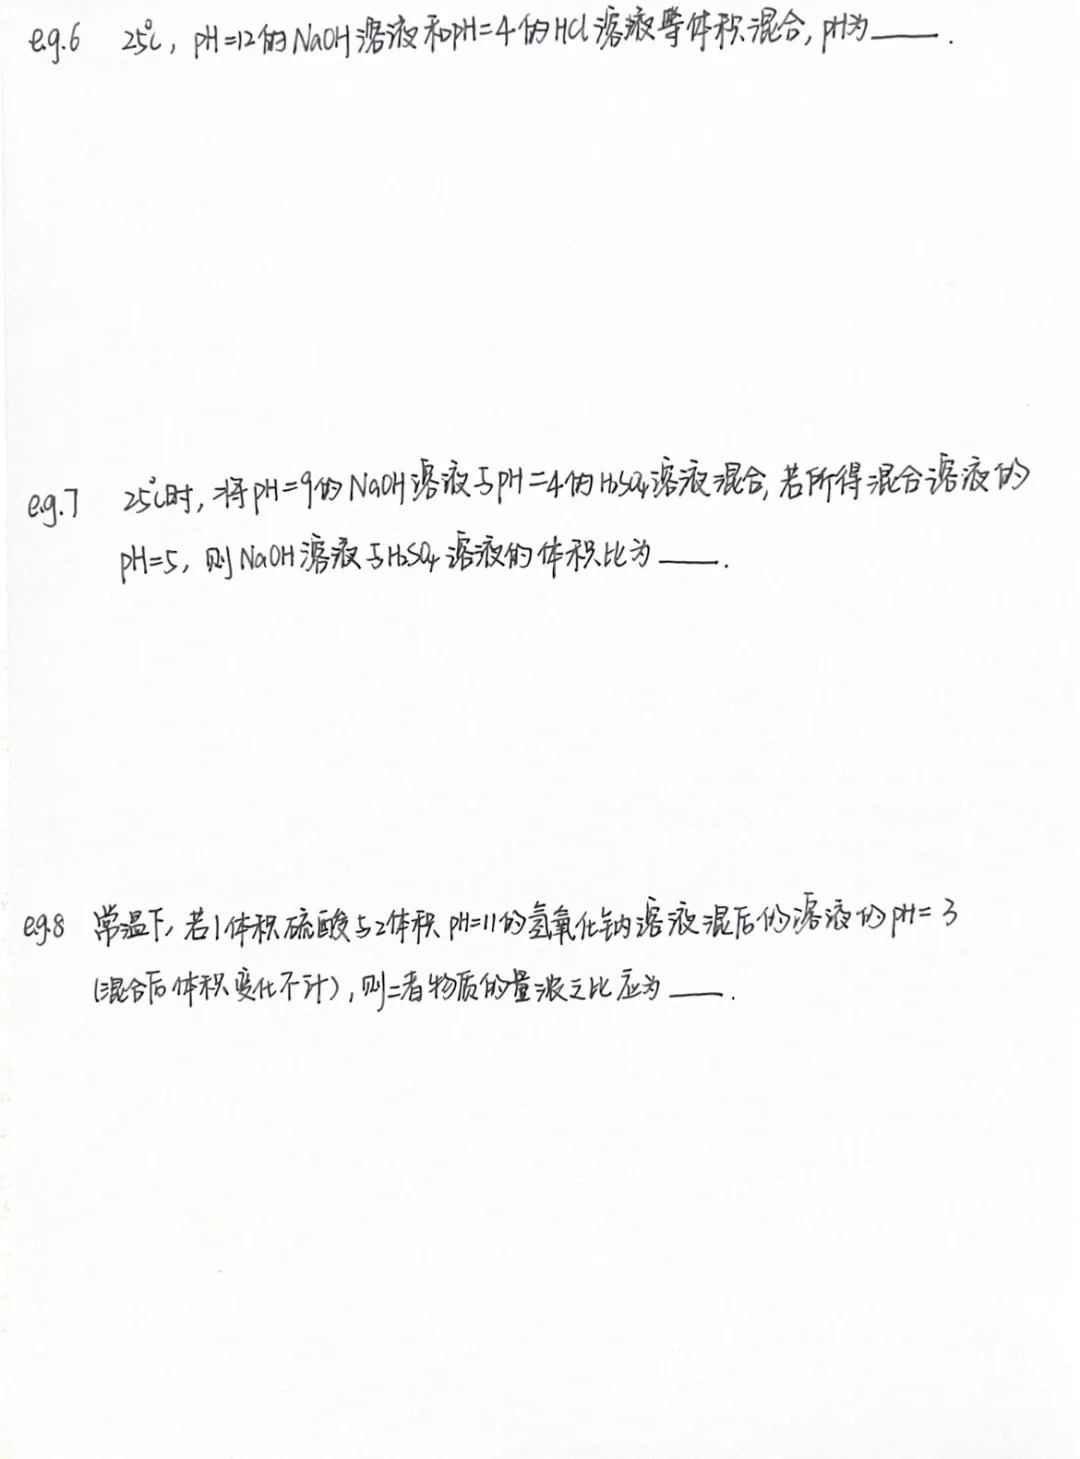 eg.6 25℃, pH=12的NaOH溶液和pH=4的HCl溶液等体积混合, pH为____.
eg.7 25℃时, 将pH=9的NaOH溶液与pH=4的H₂SO₄溶液混合, 若所得混合溶液的
pH=5, 则NaOH溶液与H₂SO₄溶液的体积比为____.
eg.8 常温下, 若1体积硫酸与2体积pH=11的氢氧化钠溶液混后的溶液的pH=3
(混合后体积变化不计), 则二者物质的量浓之比应为____.